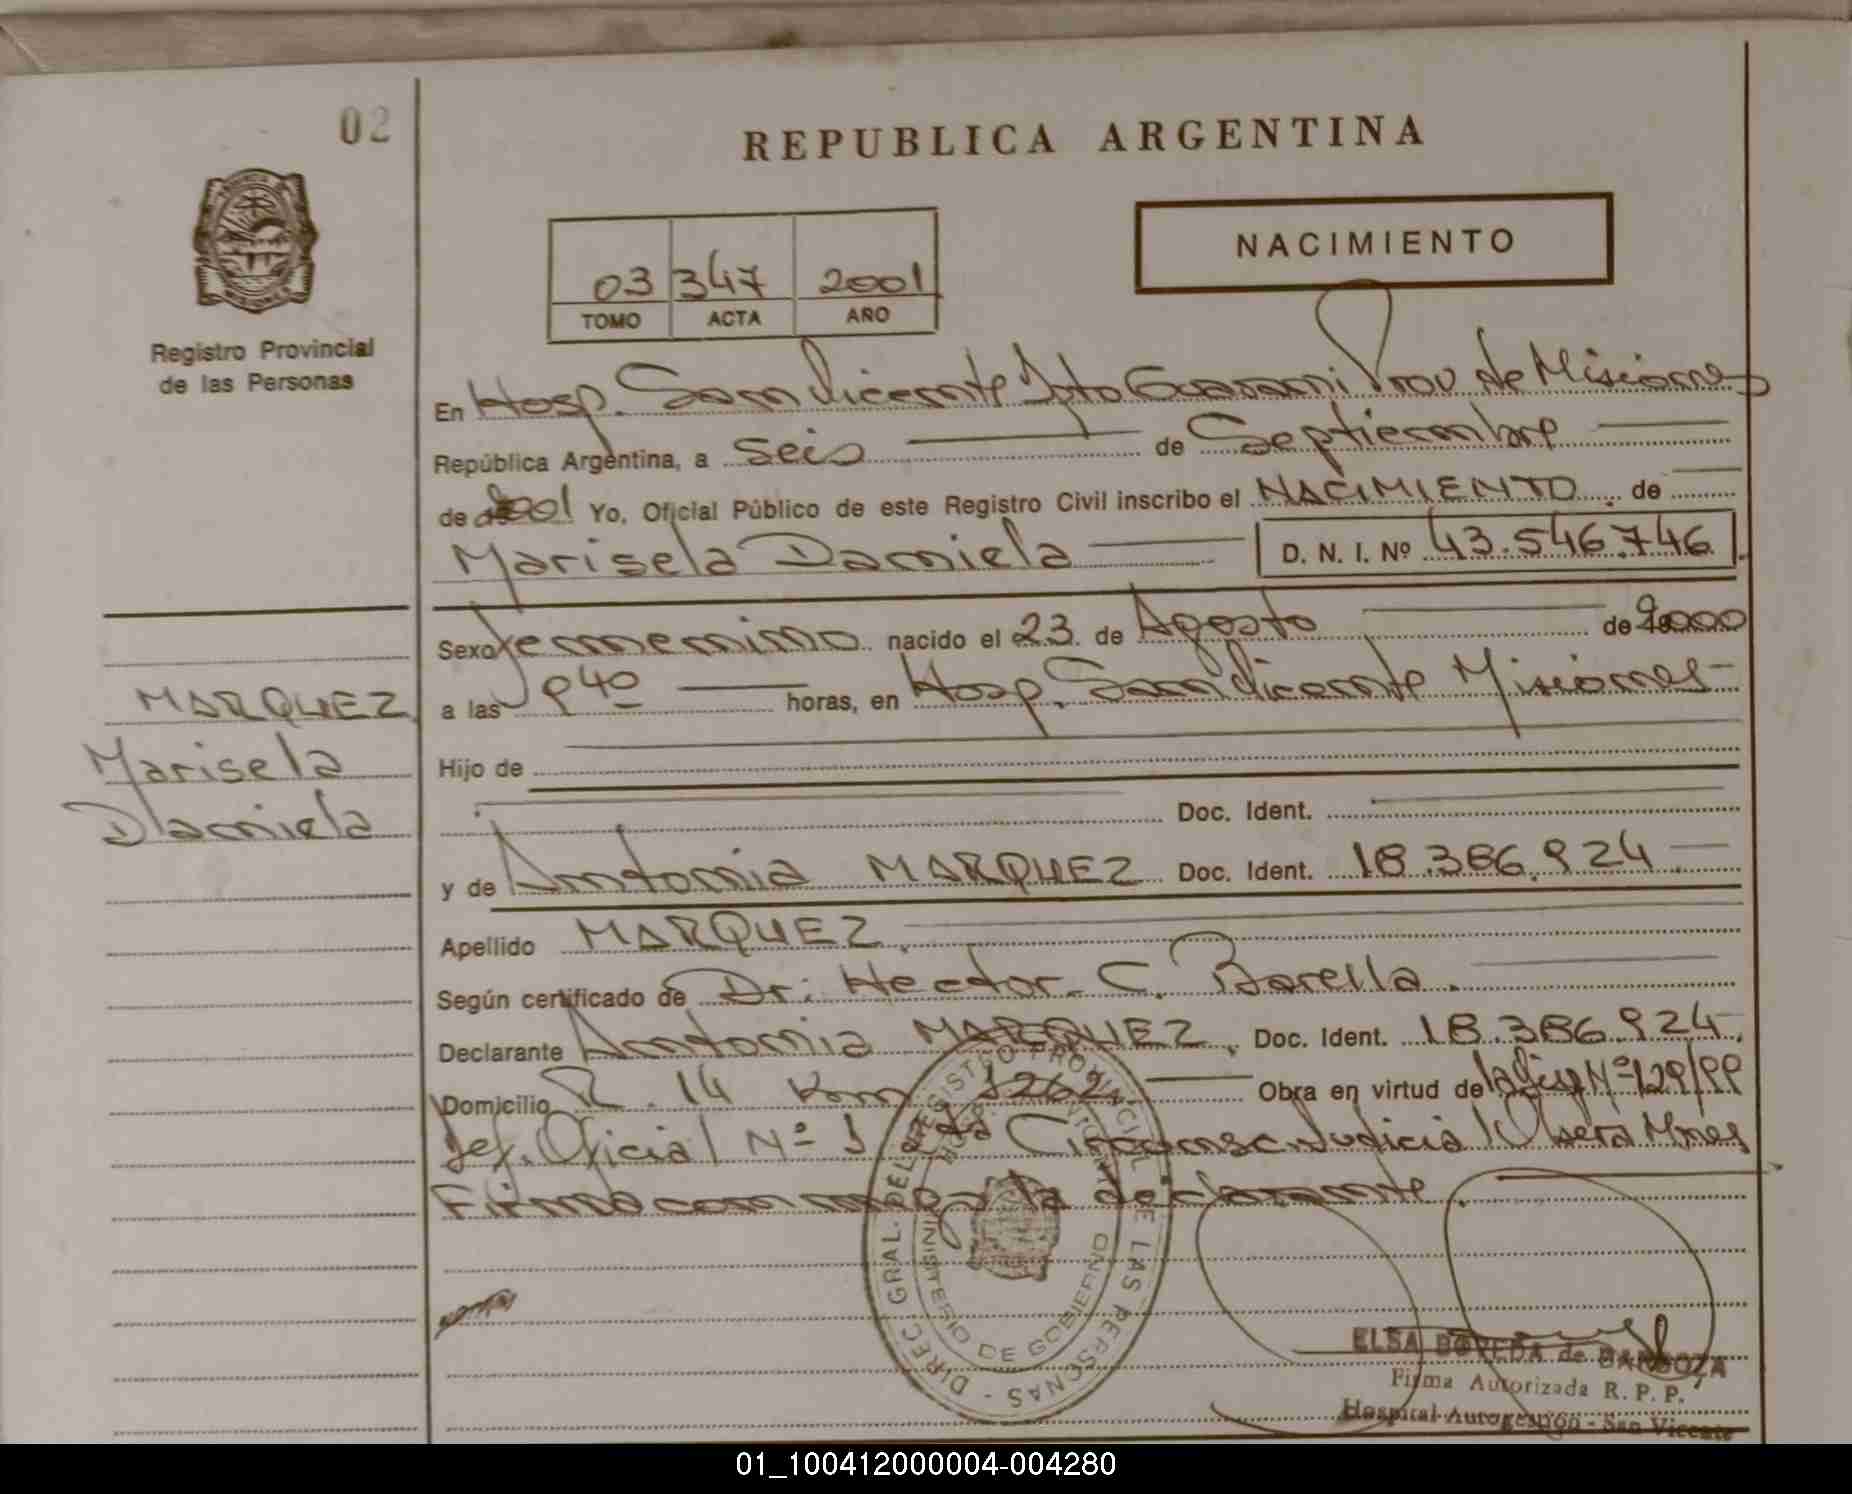 02
REPUBLICA ARGENTINA
NACIMIENTO
03 347 2001
TOMO ACTA AÑO
Registro Provincial
de las Personas
En Hosp. San Vicente Dpto Guarani Prov de Misiones
República Argentina, a seis de Septiembre
de 2001 Yo, Oficial Público de este Registro Civil inscribo el NACIMIENTO de
Marisela Daniela D. N. I. Nº 43.546.746
Sexo femenino nacido el 23 de Agosto de 2000
a las horas, en Hosp. San Vicente Misiones
MARQUEZ
Marisela
Daniela
Hijo de
Doc. Ident.
y de Antonia MARQUEZ Doc. Ident. 18.386.924
Apellido MARQUEZ.
Según certificado de Dr: Hector C. Barella.
Declarante Antonia MARQUEZ, Doc. Ident. 18.386.924.
Domicilio R. 14 Km 1262. Obra en virtud de la Ley Nº 129/99
Def. Oficial Nº 1 2da Circunsc. Judicial Obera Mnes
Firma conmigo la declarante.
DIREC GRAL. DEL REGISTRO PROVINCIAL DE LAS PERSONAS
MINISTERIO DE GOBIERNO
ELSA BOVEDA de BARBOZA
Firma Autorizada R. P. P.
Hospital Autogestión - San Vicente
01_100412000004-004280